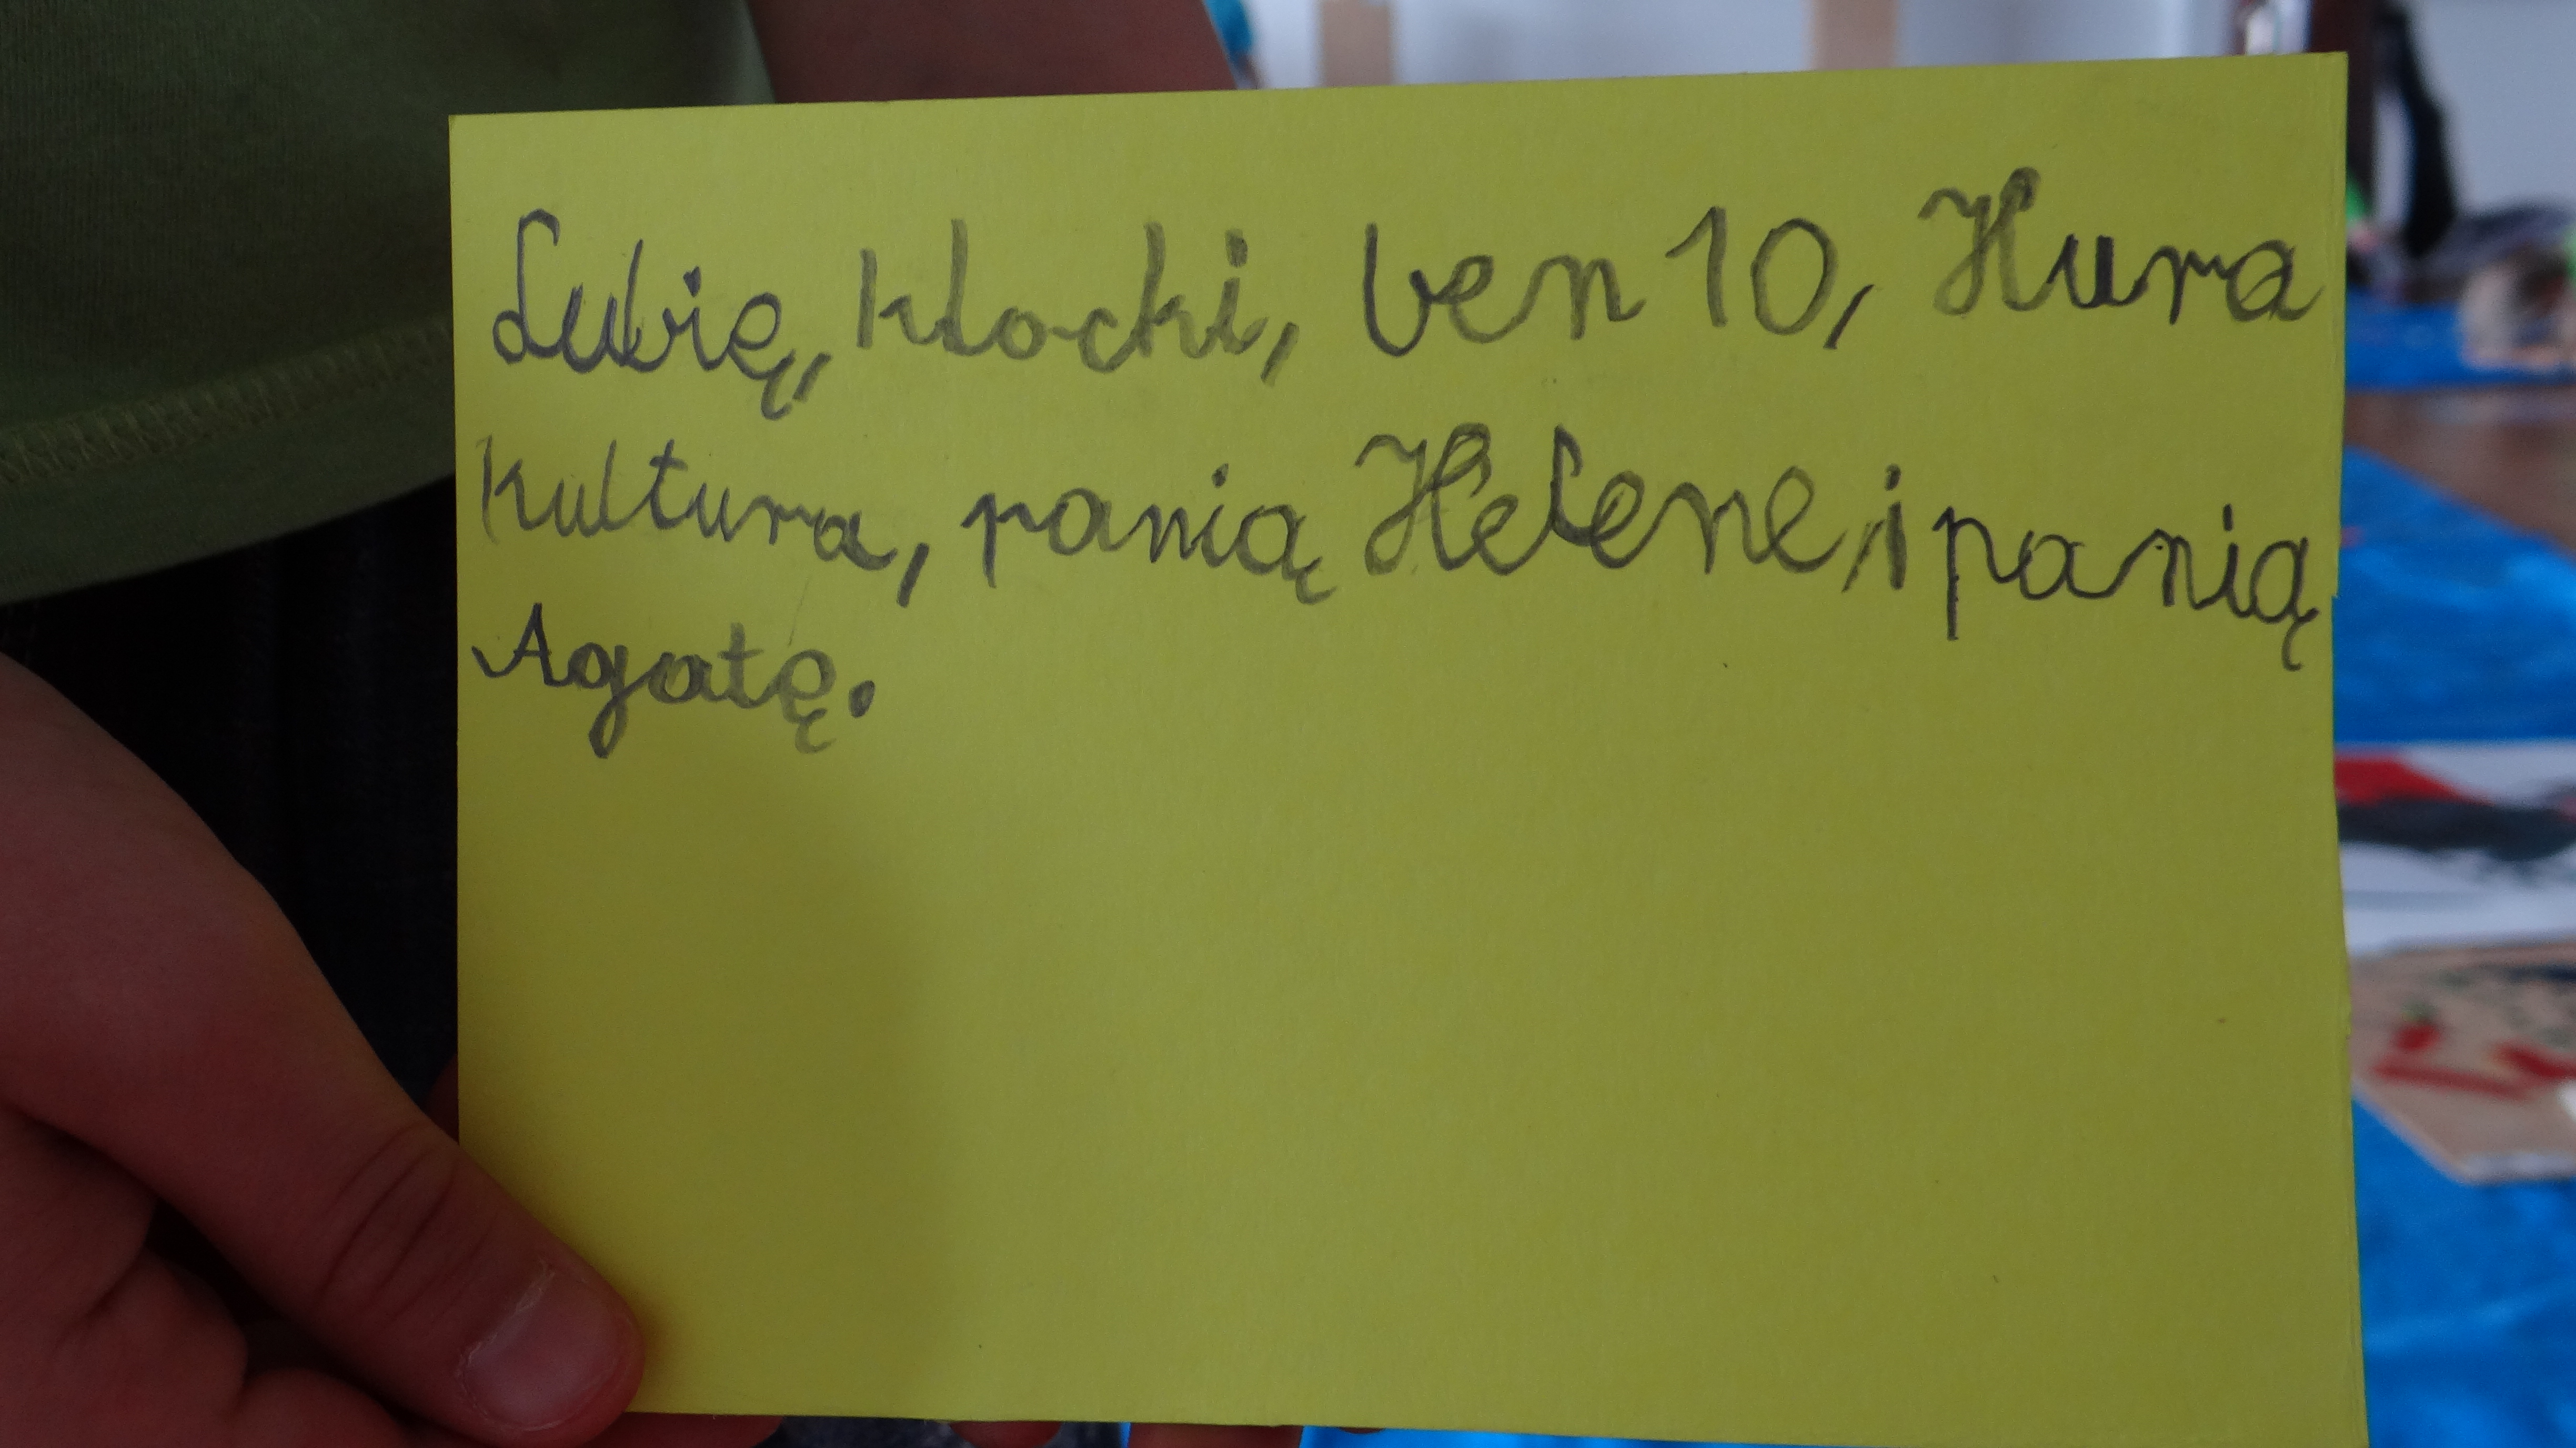 Lubię, klocki, ben 10, Hura
kultura, panią Helene, i panią
Agatę.